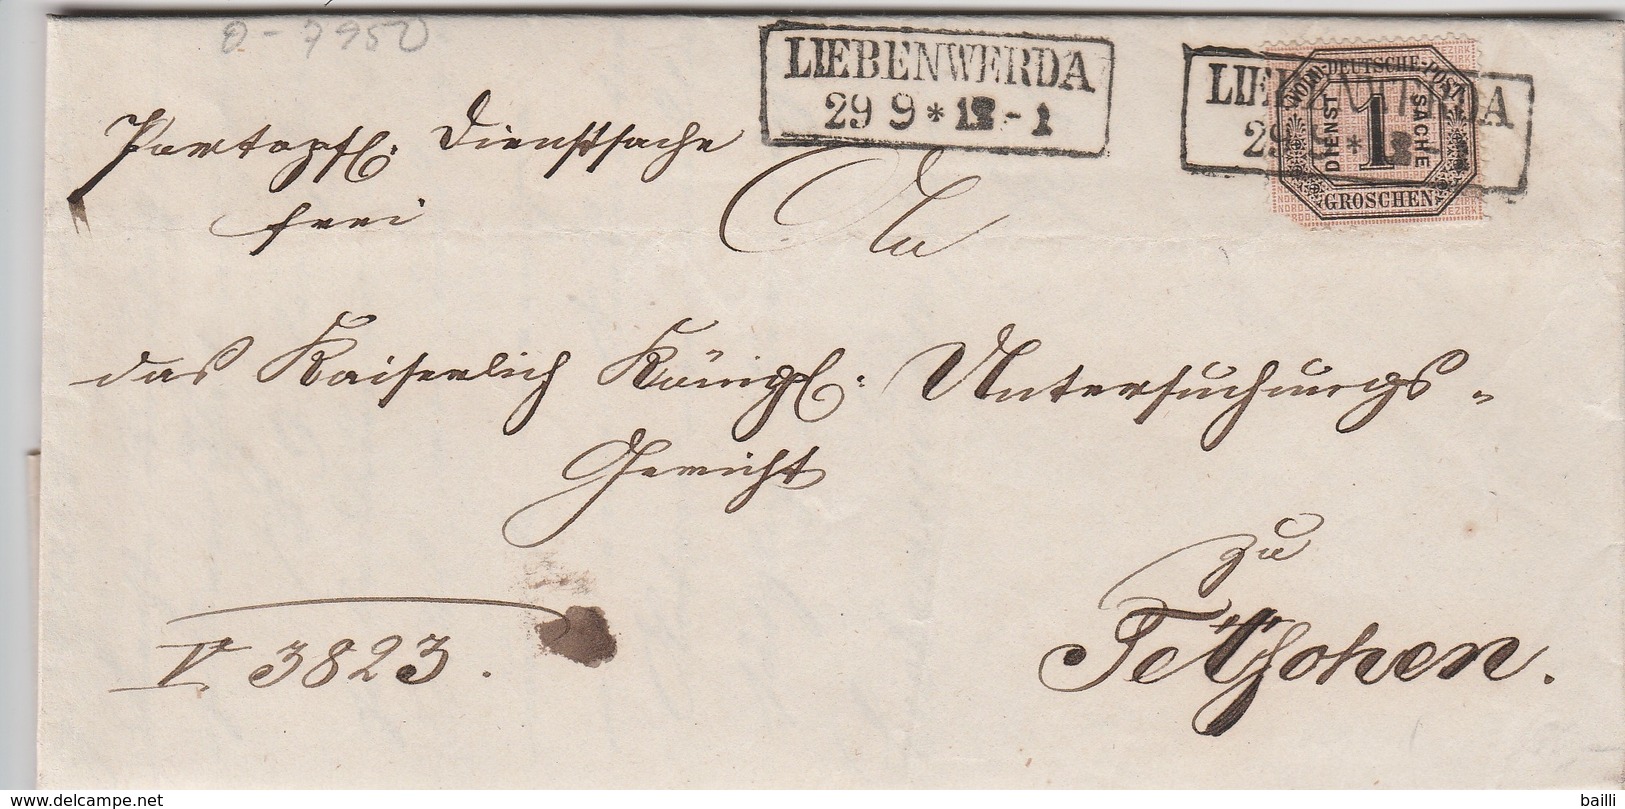 0-7950
LIEBENWERDA
29 9 * 12 - 1
LIEBENWERDA
29 9 * 12
NORDDEUTSCHE-POST
DIENST
1
SACHE
GROSCHEN
Portopfl. Dienstsache
frei
An
das Kaiserlich Königl: Untersuchungs-
Gericht
zu
Tetschen.
V. 3823.
www.delcampe.net
bailli